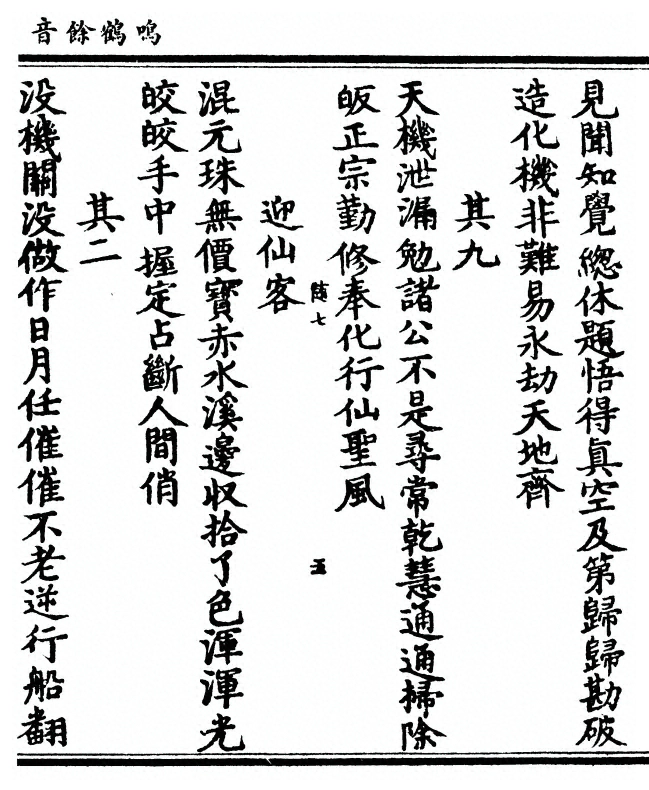 鳴鶴餘音
見聞知覺緫休題悟得真空及第歸歸勘破
造化機非難易永劫天地齊
其九
天機泄漏勉諸公不是尋常乾慧通通掃除
皈正宗勤修奉化行仙聖風
随七
五
迎仙客
混元珠無價寶赤水溪邊収拾了色渾渾光
皎皎手中握定占斷人間俏
其二
没機關没做作日月任催催不老逆行船翻